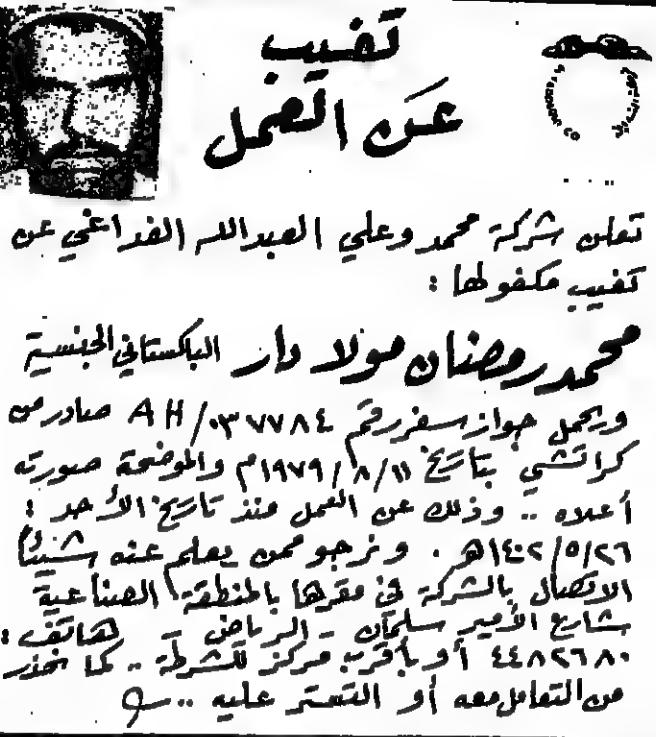 تغيب
عن العمل
تعلن شركة محمد وعلي العبدالله الفداغي عن
تغيب مكفولها :
محمد رمضان مولا دار الباكستاني الجنسية
ويحمل جواز سفر رقم AH/٠٣٧٧٨٤ صادر من
كراتشي بتاريخ ١١/٨/١٩٧٩م والموضحة صورته
أعلاه .. وذلك عن العمل منذ تاريخ الأحد :
٢٦/٥/١٤٠٢هـ . ونرجو ممن يعلم عنه شيئاً
الاتصال بالشركة في مقرها بالمنطقة الصناعية
بشارع الأمير سلمان - الرياض - هاتف :
٤٤٨٢٦٨٠ أو بأقرب مركز للشرطة .. كما نحذر
من التعامل معه أو التستر عليه ..